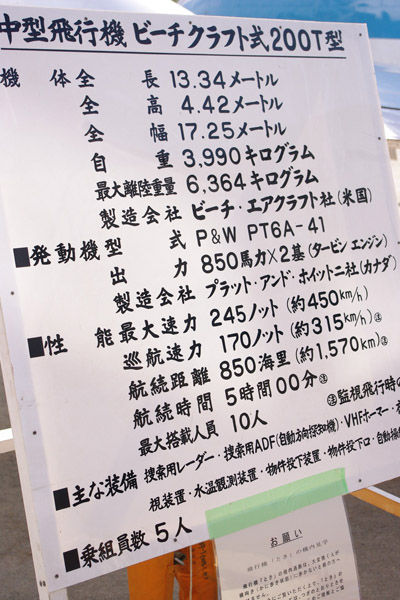 中型飛行機 ビーチクラフト式200T型
機体全長 13.34メートル
全高 4.42メートル
全幅 17.25メートル
自重 3,990キログラム
最大離陸重量 6,364キログラム
製造会社 ビーチ・エアクラフト社(米国)
■発動機型式 P&W PT6A-41
出力 850馬力×2基(タービンエンジン)
製造会社 プラット・アンド・ホイットニ社(カナダ)
■性能最大速力 245ノット(約450km/h)
巡航速力 170ノット(約315km/h)㊟
航続距離 850海里(約1,570km)㊟
航続時間 5時間00分㊟
最大搭載人員 10人
㊟監視飛行時の
■主な装備 捜索用レーダー・捜索用ADF(自動方向探知機)・VHFホーマー・
視装置・水温観測装置・物件投下装置・物件投下口・自動操
■乗組員数 5人
お願い
飛行機「たき」の機内見学